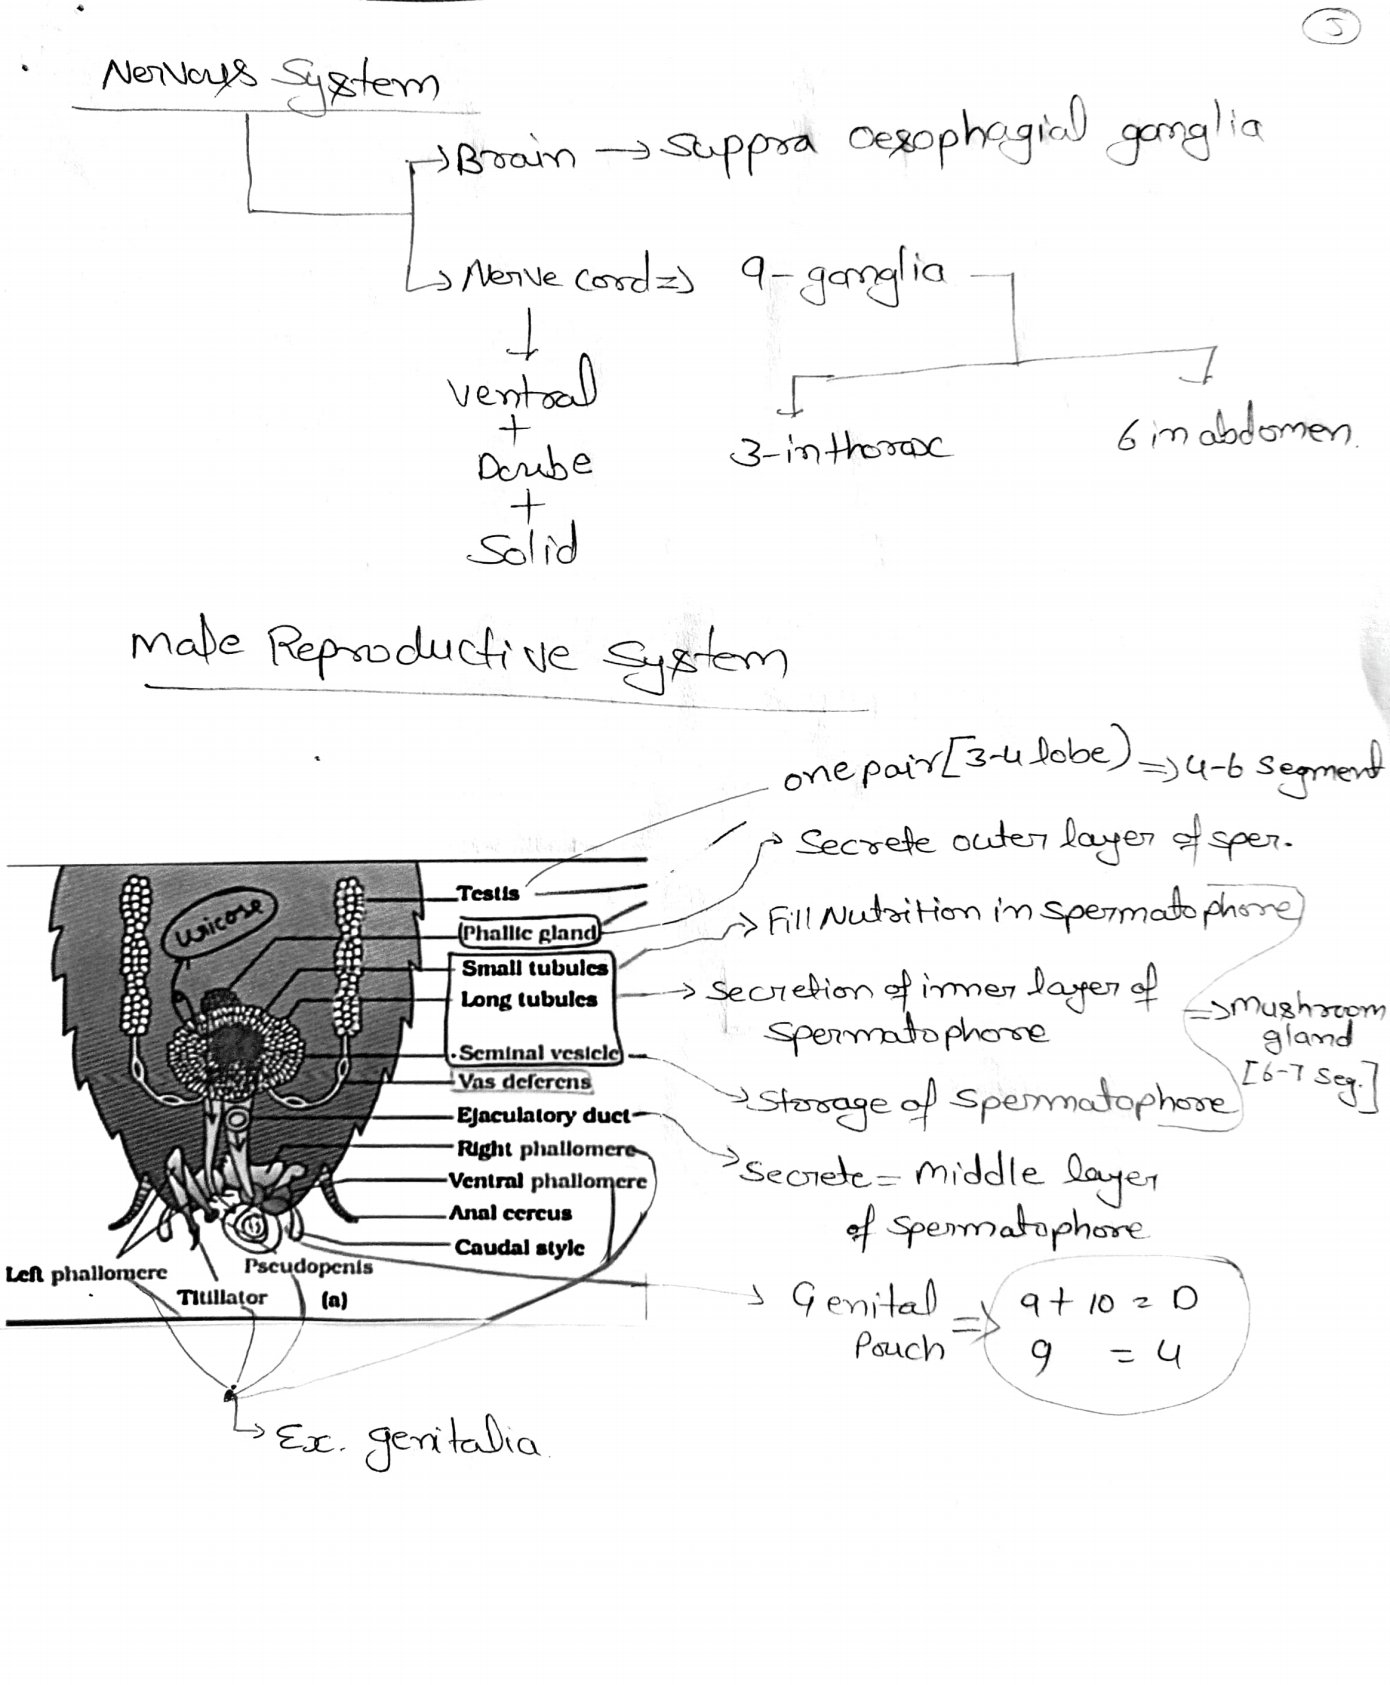 5
Nervous System
→ Brain → Suppra oesophagial ganglia
→ Nerve cord ⇒ 9-ganglia
↓
Ventral
+
Doube
+
Solid
3-in thorax
6 in abdomen.
Male Reproductive System
one pair [3-4 lobe) ⇒ 4-6 segment
→ Secrete outer layer of sper.
Testis
uricose
Phallic gland
→ Fill Nutrition in spermatophore
Small tubules
Long tubules
→ Secretion of inner layer of
spermatophore
⇒ Mushroom
gland
[6-7 Seg.]
Seminal vesicle
Vas deferens
→ Storage of spermatophore
Ejaculatory duct
Right phallomere
→ Secrete = Middle layer
of spermatophore
Ventral phallomere
Anal cercus
Caudal style
Left phallomere
Pseudopenis
Titillator
(a)
→ Genital
Pouch ⇒
9 + 10 = D
9 = 4
→ Ex. genitalia